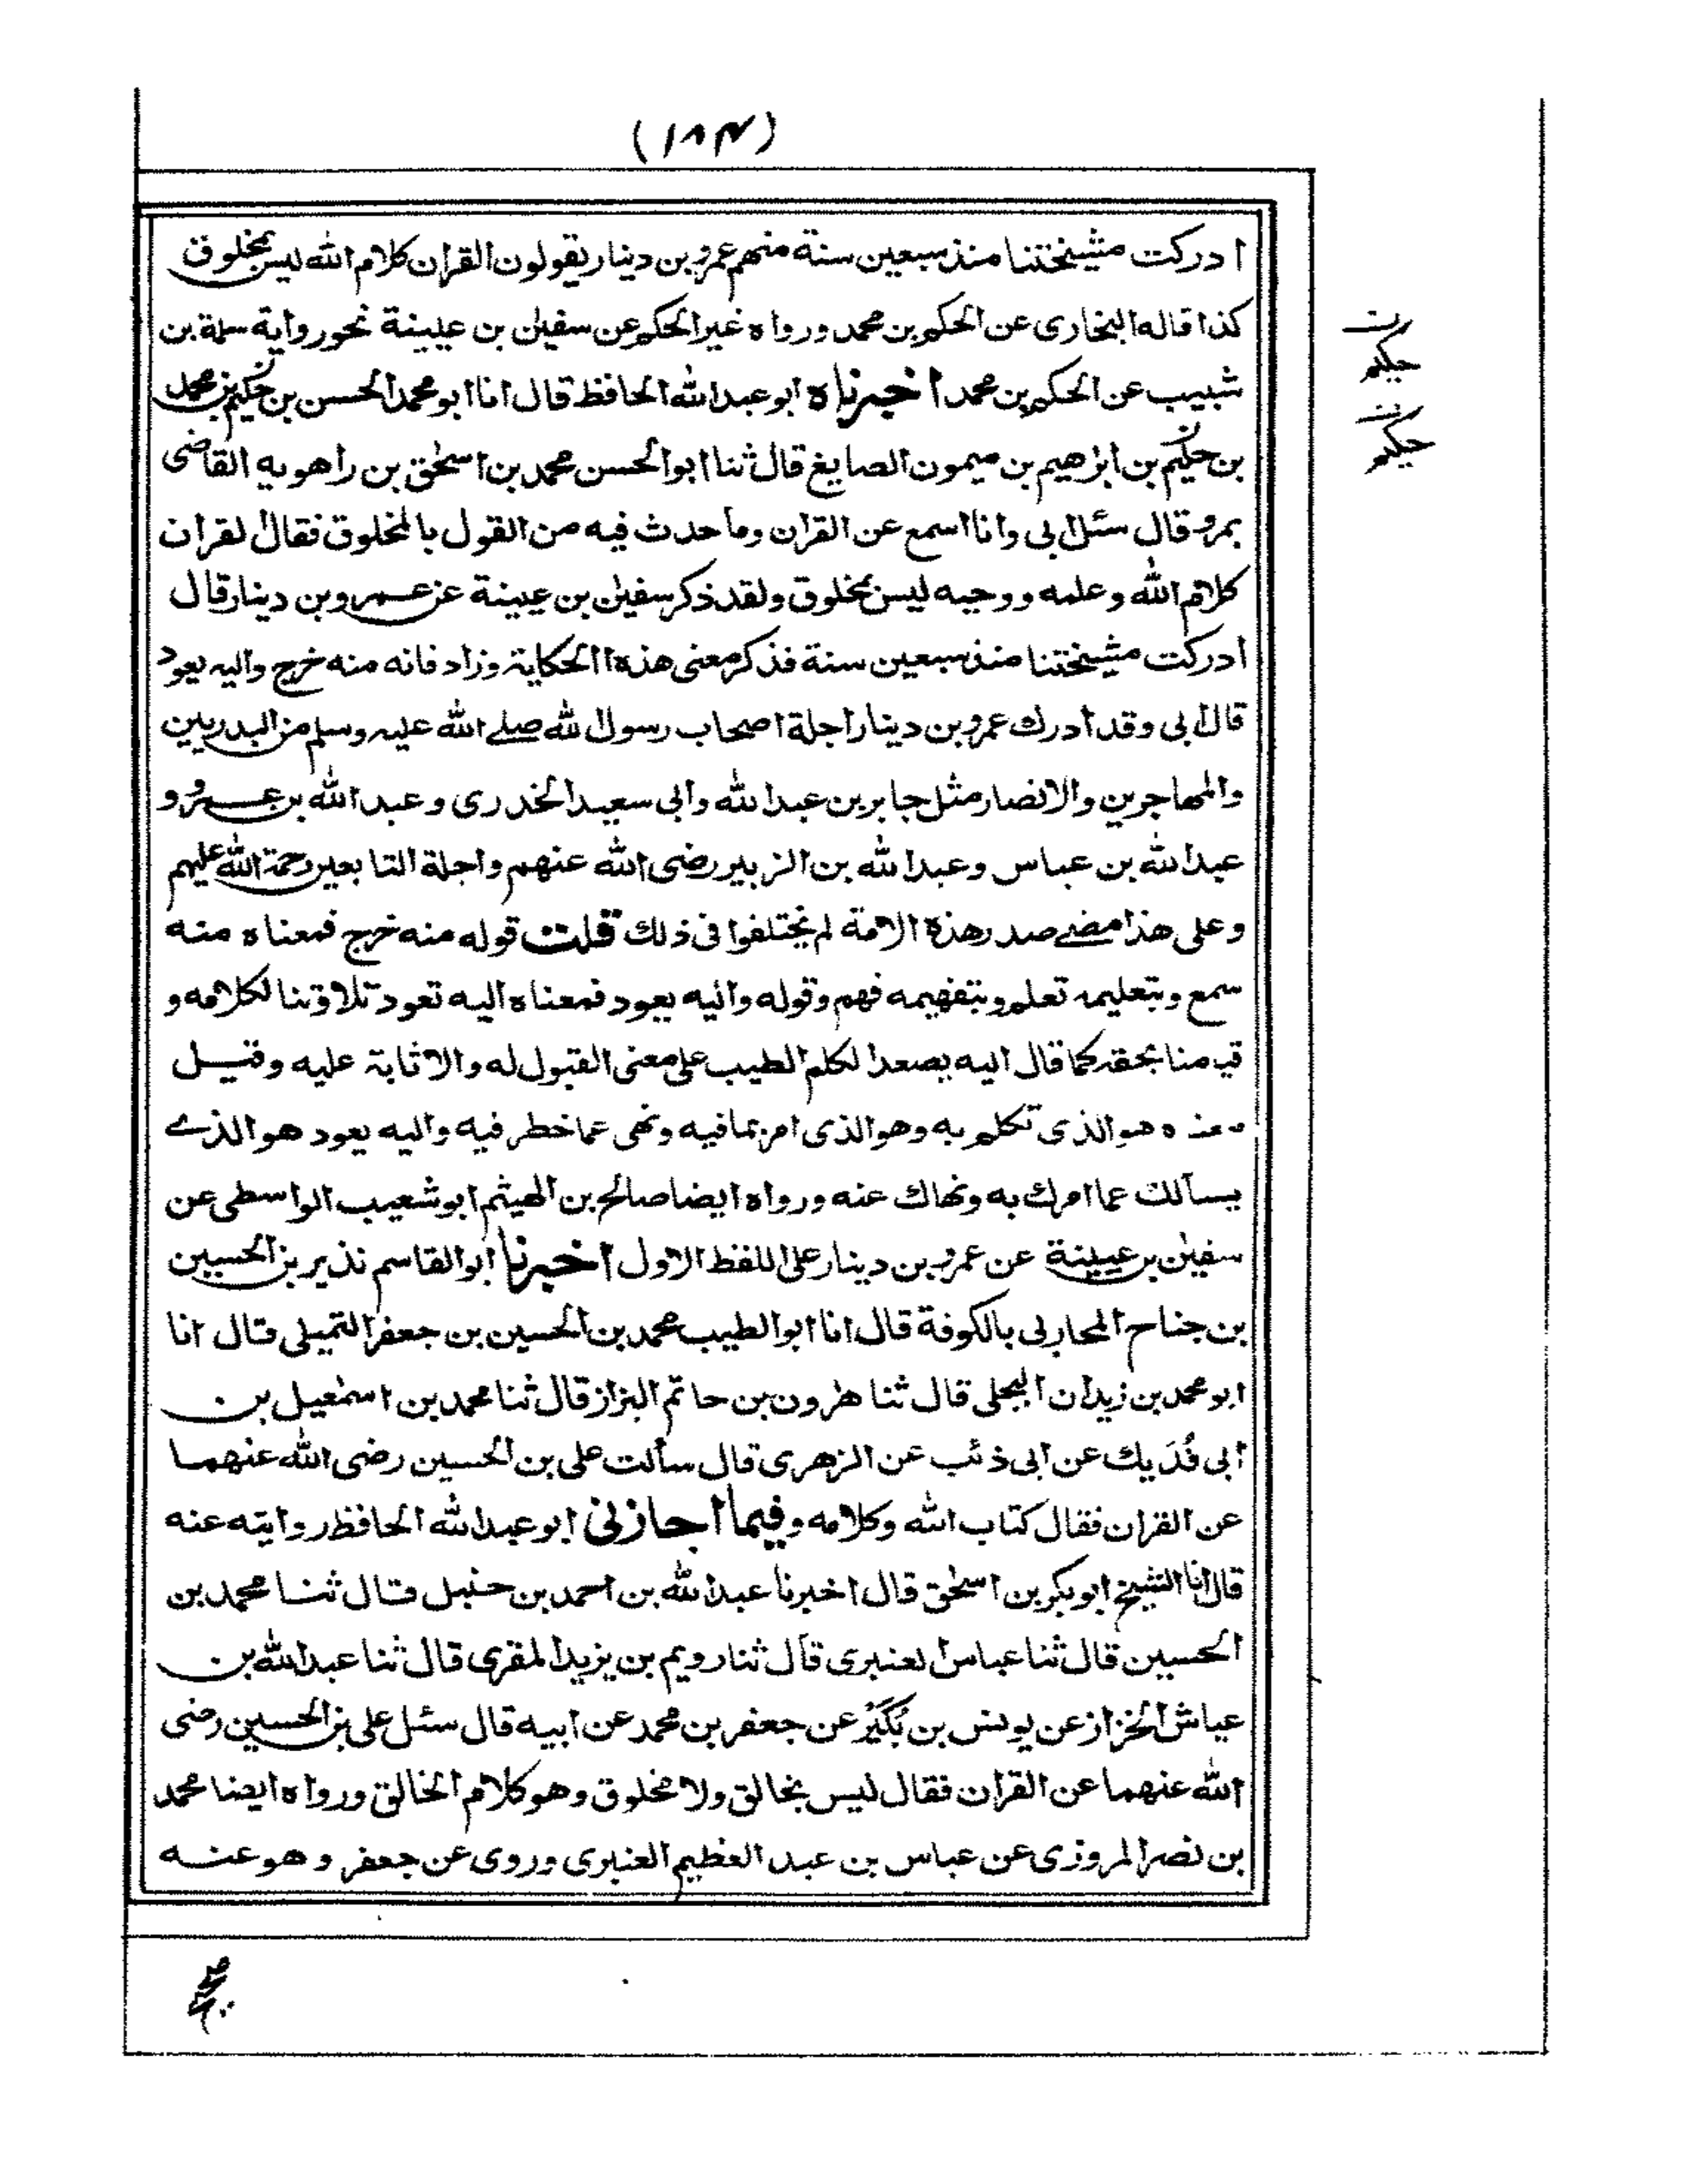 (١٨٤)
ادركت مشيختنا منذ سبعين سنة منهم عمرو بن دينار يقولون القران كلام الله ليس بمخلوق
كذا قاله البخارى عن الحكم بن محمد ورواه غير الحكم عن سفين بن عيينة نحو رواية سلمة بن
شبيب عن الحكم بن محمد اخبرناه ابو عبد الله الحافظ قال انا ابو محمد الحسن بن حكيم بن محمد
بن حكيم بن ابرهيم بن ميمون الصايغ قال ثنا ابو الحسن محمد بن اسحق بن راهويه القاضى
بمرو قال سئل ابى وانا اسمع عن القران وما حدث فيه من القول بالمخلوق فقال القران
كلام الله وعلمه ووحيه ليس بمخلوق ولقد ذكر سفين بن عيينة عن عمرو بن دينار قال
ادركت مشيختنا منذ سبعين سنة فذكر معنى هذه الحكاية وزاد فانه منه خرج واليه يعود
قال ابى وقد ادرك عمرو بن دينار اجلة اصحاب رسول الله صلے الله عليه وسلم من البدريين
والمهاجرين والانصار مثل جابر بن عبد الله وابى سعيد الخدرى وعبد الله بن عمرو و
عبد الله بن عباس وعبد الله بن الزبير رضى الله عنهم واجلة التابعين رحمة الله عليهم
وعلى هذا مضے صدر هذه الامة لم يختلفوا فى ذلك قلت قوله منه خرج فمعناه منه
سمع وبتعليمه تعلم وبتفهيمه فهم وقوله واليه يعود فمعناه اليه تعود تلاوتنا لكلامه و
قيامنا بحقه كما قال اليه يصعد الكلم الطيب على معنى القبول له والاثابة عليه وقيل
معناه هو الذى تكلم به وهو الذى امر بما فيه ونهى عما خطر فيه واليه يعود هو الذے
يسألك عما امرك به ونهاك عنه ورواه ايضا صالح بن الهيثم ابو شعيب الواسطى عن
سفين بن عيينة عن عمرو بن دينار على اللفظ الاول اخبرنا ابو القاسم نذير بن الحسين
بن جناح المحاربى بالكوفة قال انا ابو الطيب محمد بن الحسين بن جعفر التميلى قال انا
ابو محمد بن زيدان البجلى قال ثنا هرون بن حاتم البزاز قال ثنا محمد بن اسمعيل بن
ابى فُدَيك عن ابى ذئب عن الزهرى قال سألت على بن الحسين رضى الله عنهما
عن القران فقال كتاب الله وكلامه وفيما اجازنى ابو عبد الله الحافظ روايته عنه
قال انا الشيخ ابو بكر بن اسحق قال اخبرنا عبد الله بن احمد بن حنبل قال ثنا محمد بن
الحسين قال ثنا عباس العنبرى قال ثنا رويم بن يزيد المقرى قال ثنا عبد الله بن
عياش الخزاز عن يونس بن بُكَيْر عن جعفر بن محمد عن ابيه قال سئل على بن الحسين رضى
الله عنهما عن القران فقال ليس بخالق ولا مخلوق وهو كلام الخالق ورواه ايضا محمد
بن نصر المروزى عن عباس بن عبد العظيم العنبرى وروى عن جعفر وهو عنه
ن
حكيم
ن
حكيم